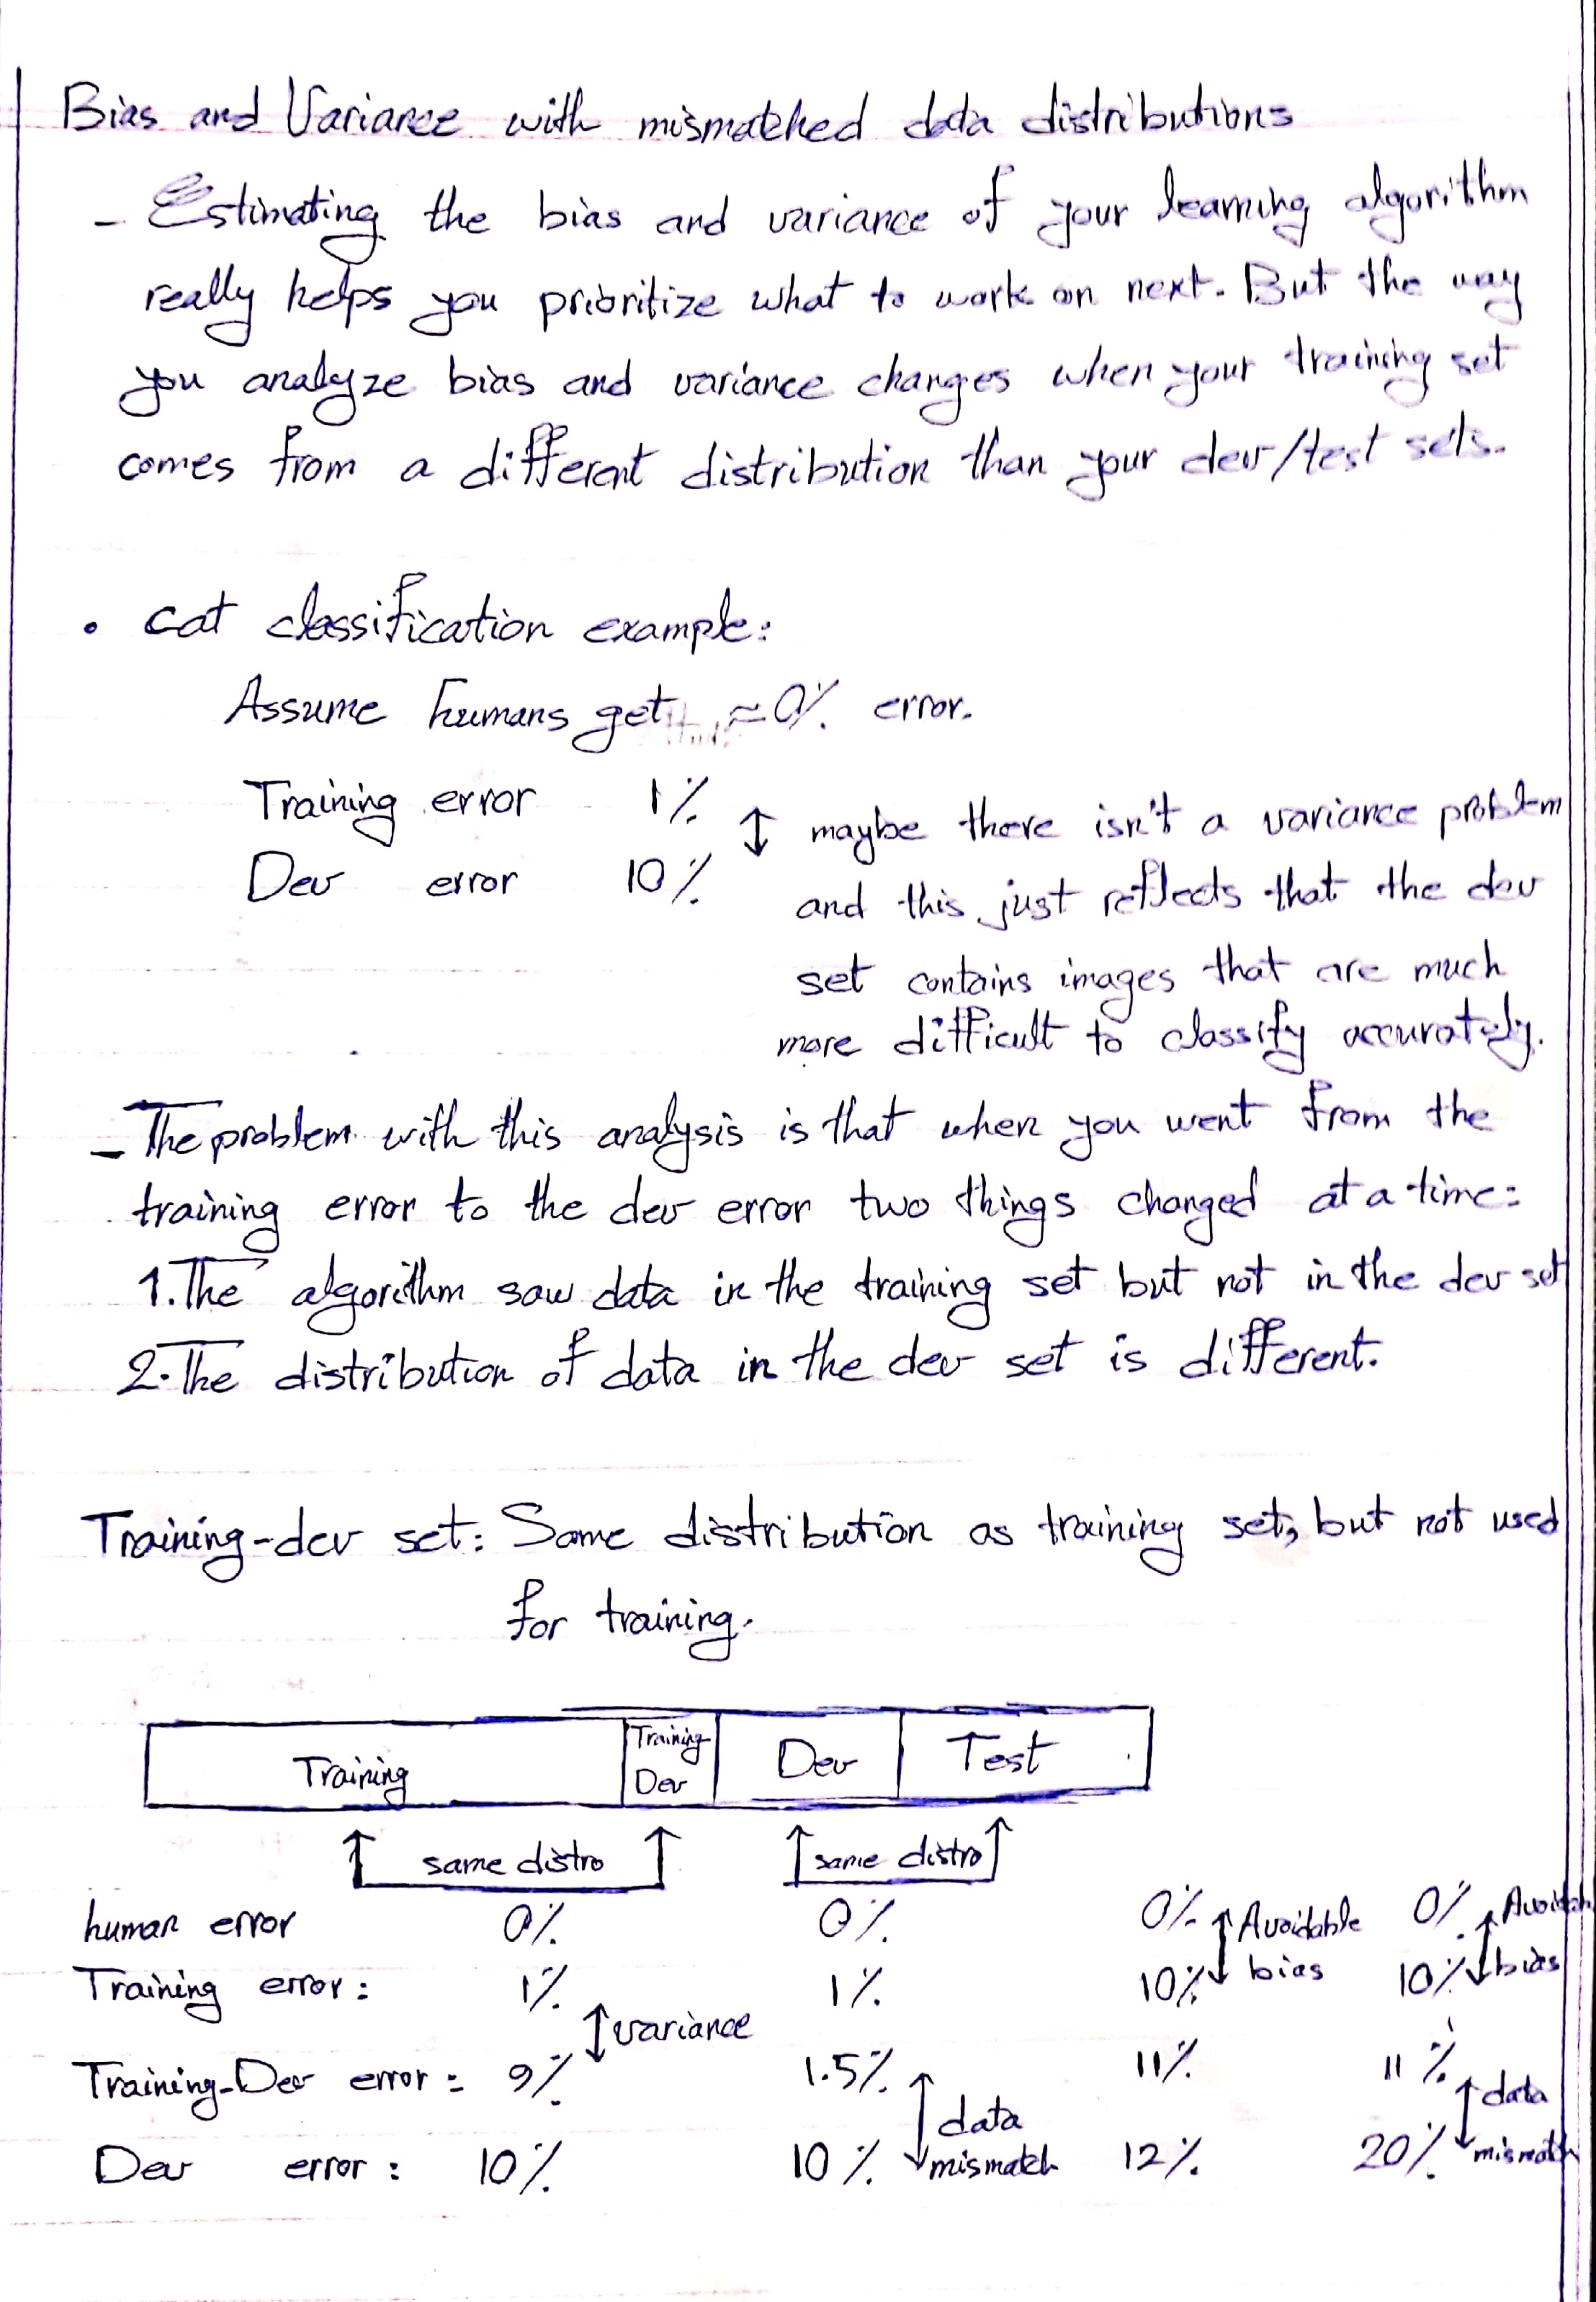 Bias and Variance with mismatched data distributions
- Estimating the bias and variance of your learning algorithm
really helps you prioritize what to work on next. But the way
you analyze bias and variance changes when your training set
comes from a different distribution than your dev/test sets.
• cat classification example:
Assume humans get ≈0% error.
Training error 1%
↕ maybe there isn't a variance problem
Dev error 10%
and this just reflects that the dev
set contains images that are much
more difficult to classify accurately.
- The problem with this analysis is that when you went from the
training error to the dev error two things changed at a time:
1. The algorithm saw data in the training set but not in the dev set
2. The distribution of data in the dev set is different.
Training-dev set: Same distribution as training set, but not used
for training.
Training
Training
Dev
Dev
Test
same distro
same distro
human error 0% 0% 0% ↕ Avoidable 0% ↕
Training error: 1% 1% 10% bias 10% bias
↕ variance
Training-Dev error: 9% 1.5% 11% 11%
↕ data ↕ data
Dev error: 10% 10% mismatch 12% 20% mismatch